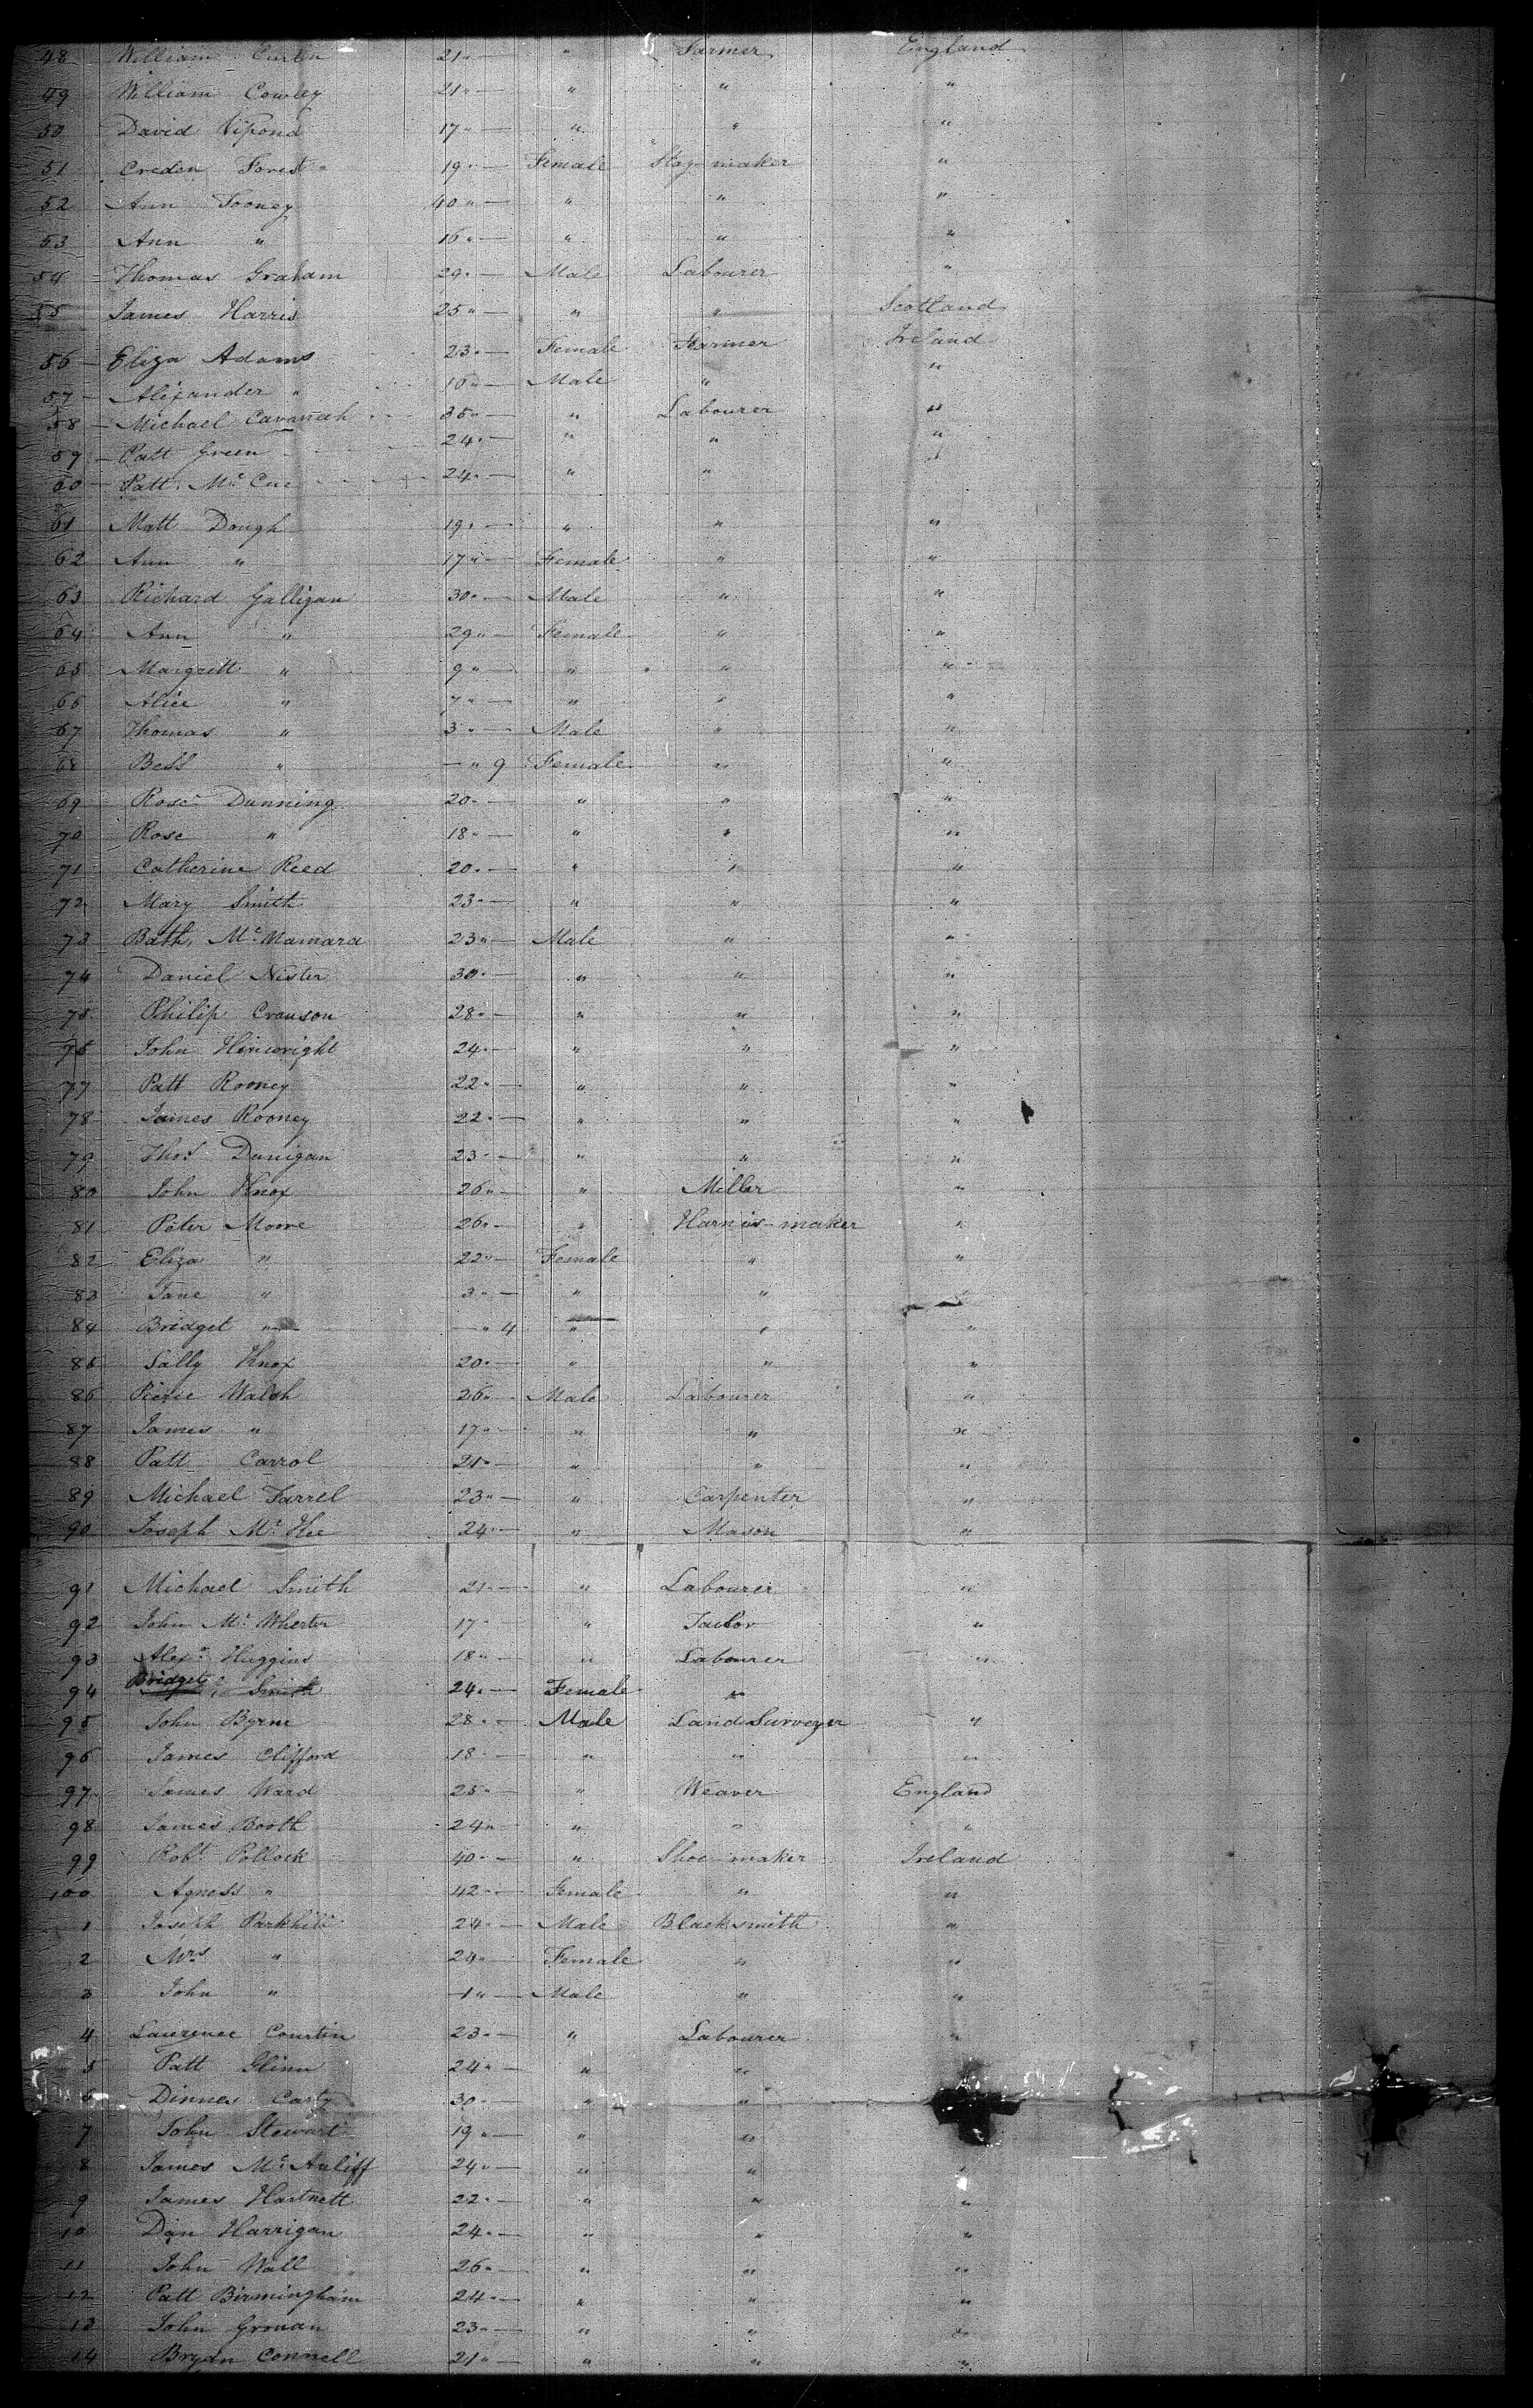 48 William Curten 21 " — " Farmer England
49 William Cowley 21 " — " " "
50 David Vipond 17 " — " " "
51 Creden Forest 19 " — Female Stay maker "
52 Ann Tooney 40 " — " " "
53 Ann " 16 " — " " "
54 Thomas Graham 29 " — Male Labourer "
55 James Harris 25 " — " " Scotland
56 Eliza Adams 23 " — Female Farmer Ireland
57 Alexander " 10 " — Male " "
58 Michael Cavanah 35 " — " Labourer "
59 Patt Green 24 " — " " "
60 Patt Mc Cue 24 " — " "
61 Matt Dough 19 " — " " "
62 Ann " 17 " — Female " "
63 Richard Galligan 30 " — Male " "
64 Ann " 29 " — Female " "
65 Margrett " 9 " — " " "
66 Alice " 7 " — " " "
67 Thomas " 3 " — Male " "
68 Bess " — " 9 Female " "
69 Rose Dunning 20 " — " " "
70 Rose " 18 " — " " "
71 Catherine Reed 20 " — " " "
72 Mary Smith 23 " — " " "
73 Bath. Mc Namara 23 " — Male " "
74 Daniel Nister 30 " — " " "
75 Philip Crauson 28 " — " " "
76 John Hinwright 24 " — " " "
77 Patt Rooney 22 " — " " "
78 James Rooney 22 " — " " "
79 Thos Dunigan 23 " — " " "
80 John Knox 26 " — " Miller "
81 Peter Moore 26 " — " Harnis-maker "
82 Eliza " 22 " — Female " "
83 Jane " 3 " — " " "
84 Bridget " — " 4 " " "
85 Sally Knox 20 " — " " "
86 Pierce Walsh 26 " — Male Labourer "
87 James " 17 " — " " "
88 Patt Carrol 21 " — " " "
89 Michael Farrel 23 " — " Carpenter "
90 Joseph Mc Kee 24 " — " Mason "
91 Michael Smith 21 " — " Labourer "
92 John Mc Wherter 17 " " Tailor "
93 Alexr Huggins 18 " — " Labourer "
94 Bridget Smith 24 " — Female "
95 John Byrne 28 " — Male Land Surveyer "
96 James Clifford 18 " — " " "
97 James Ward 25 " — " Weaver England
98 James Booth 24 " — " " "
99 Robt Pollock 40 " — " Shoe maker Ireland
100 Agness " 42 " — Female " "
1 Joseph Parkhill 24 " — Male Blacksmith "
2 Mrs " 24 " Female " "
3 John " 1 " — Male " "
4 Lawrence Courtin 23 " — " Labourer "
5 Patt Glinn 24 " — " "
6 Dinnes Carty 30 " — " "
7 John Stewart 19 " — " "
8 James Mc Auliff 24 " — " " "
9 James Hartnett 22 " — " " "
10 Dan Harrigan 24 " — " " "
11 John Wall 26 " — " " "
12 Patt Birmingham 24 " — " " "
13 John Gronan 23 " — " " "
14 Bryan Connell 21 " — " " "